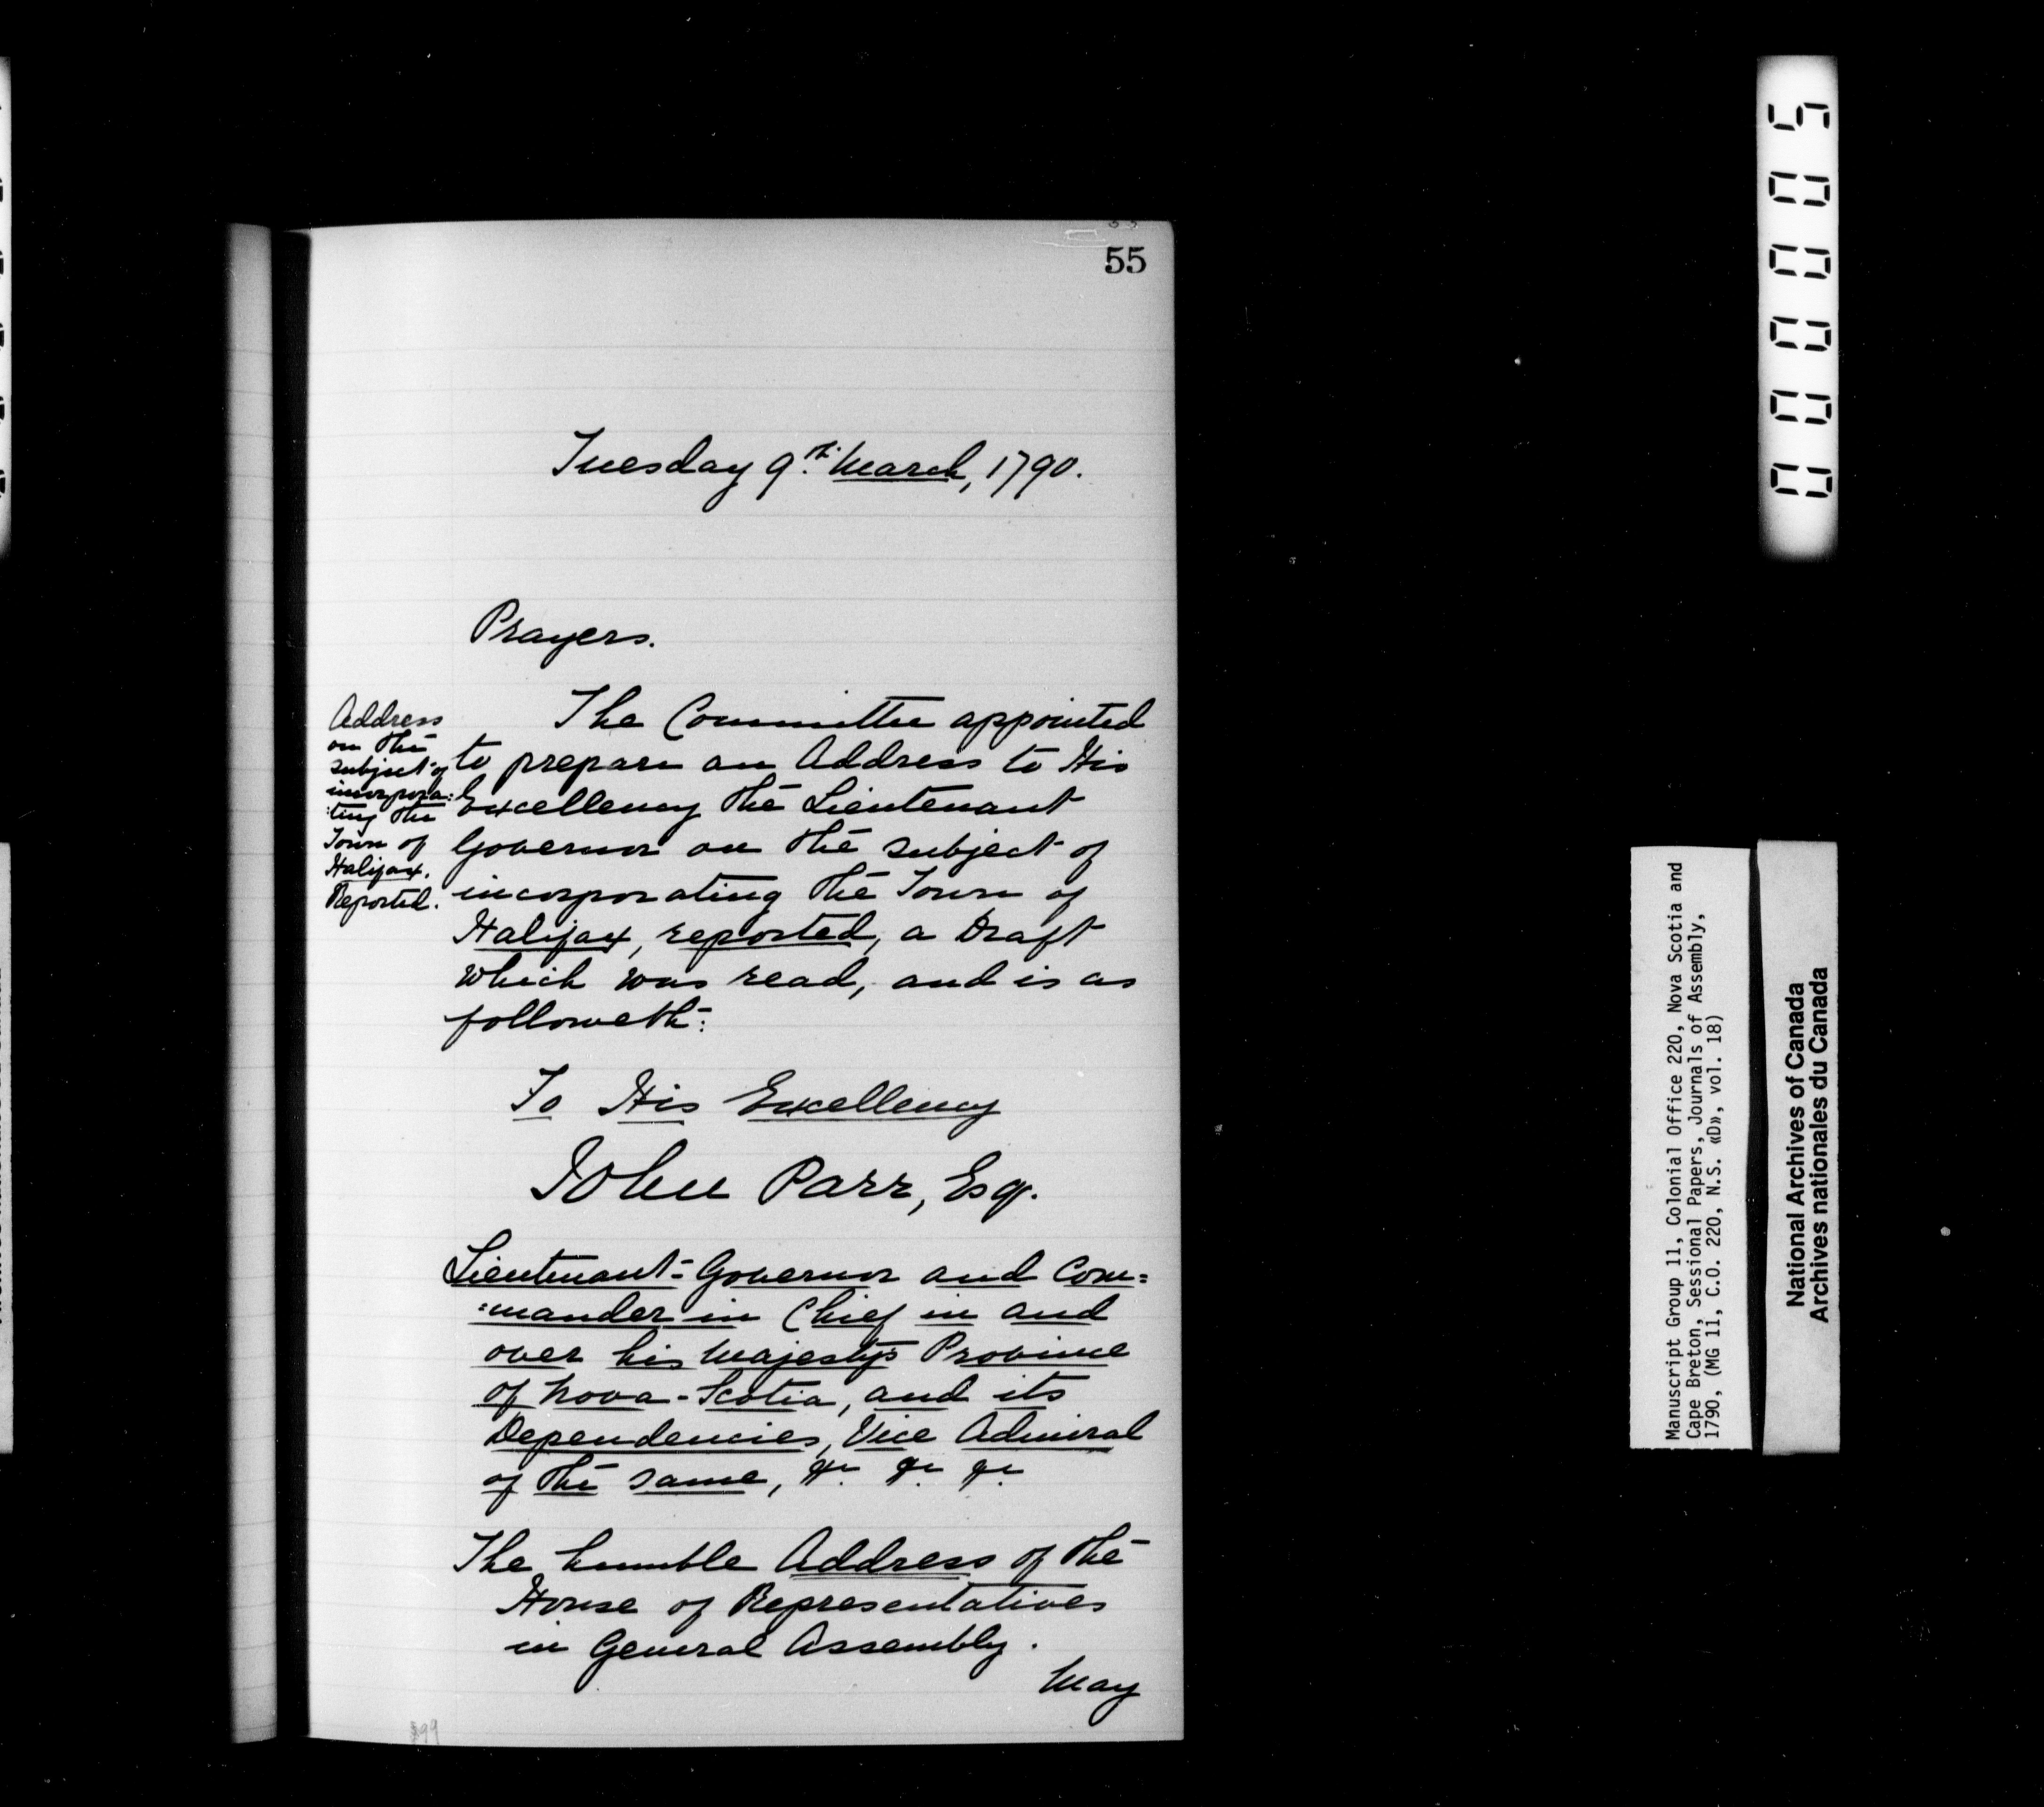 55
Tuesday 9th. March, 1790.
Prayers.
Address
on the
subject of
incorpora:
:ting the
Town of
Halifax.
Reported.
The Committee appointed
to prepare an Address to His
Excellency the Lieutenant
Governor on the subject of
incorporating the Town of
Halifax, reported, a Draft
which was read, and is as
followeth:
To His Excellency
John Parr, Esqr.
Lieutenant-Governor and Com=
:mander in Chief in and
over his Majesty's Province
of Nova-Scotia, and its
Dependencies, Vice Admiral
of the same, &c. &c. &c.
The humble Address of the
House of Representatives
in General Assembly.
May
00005
Manuscript Group 11, Colonial Office 220, Nova Scotia and
Cape Breton, Sessional Papers, Journals of Assembly,
1790, (MG 11, C.O. 220, N.S. «D», vol. 18)
National Archives of Canada
Archives nationales du Canada